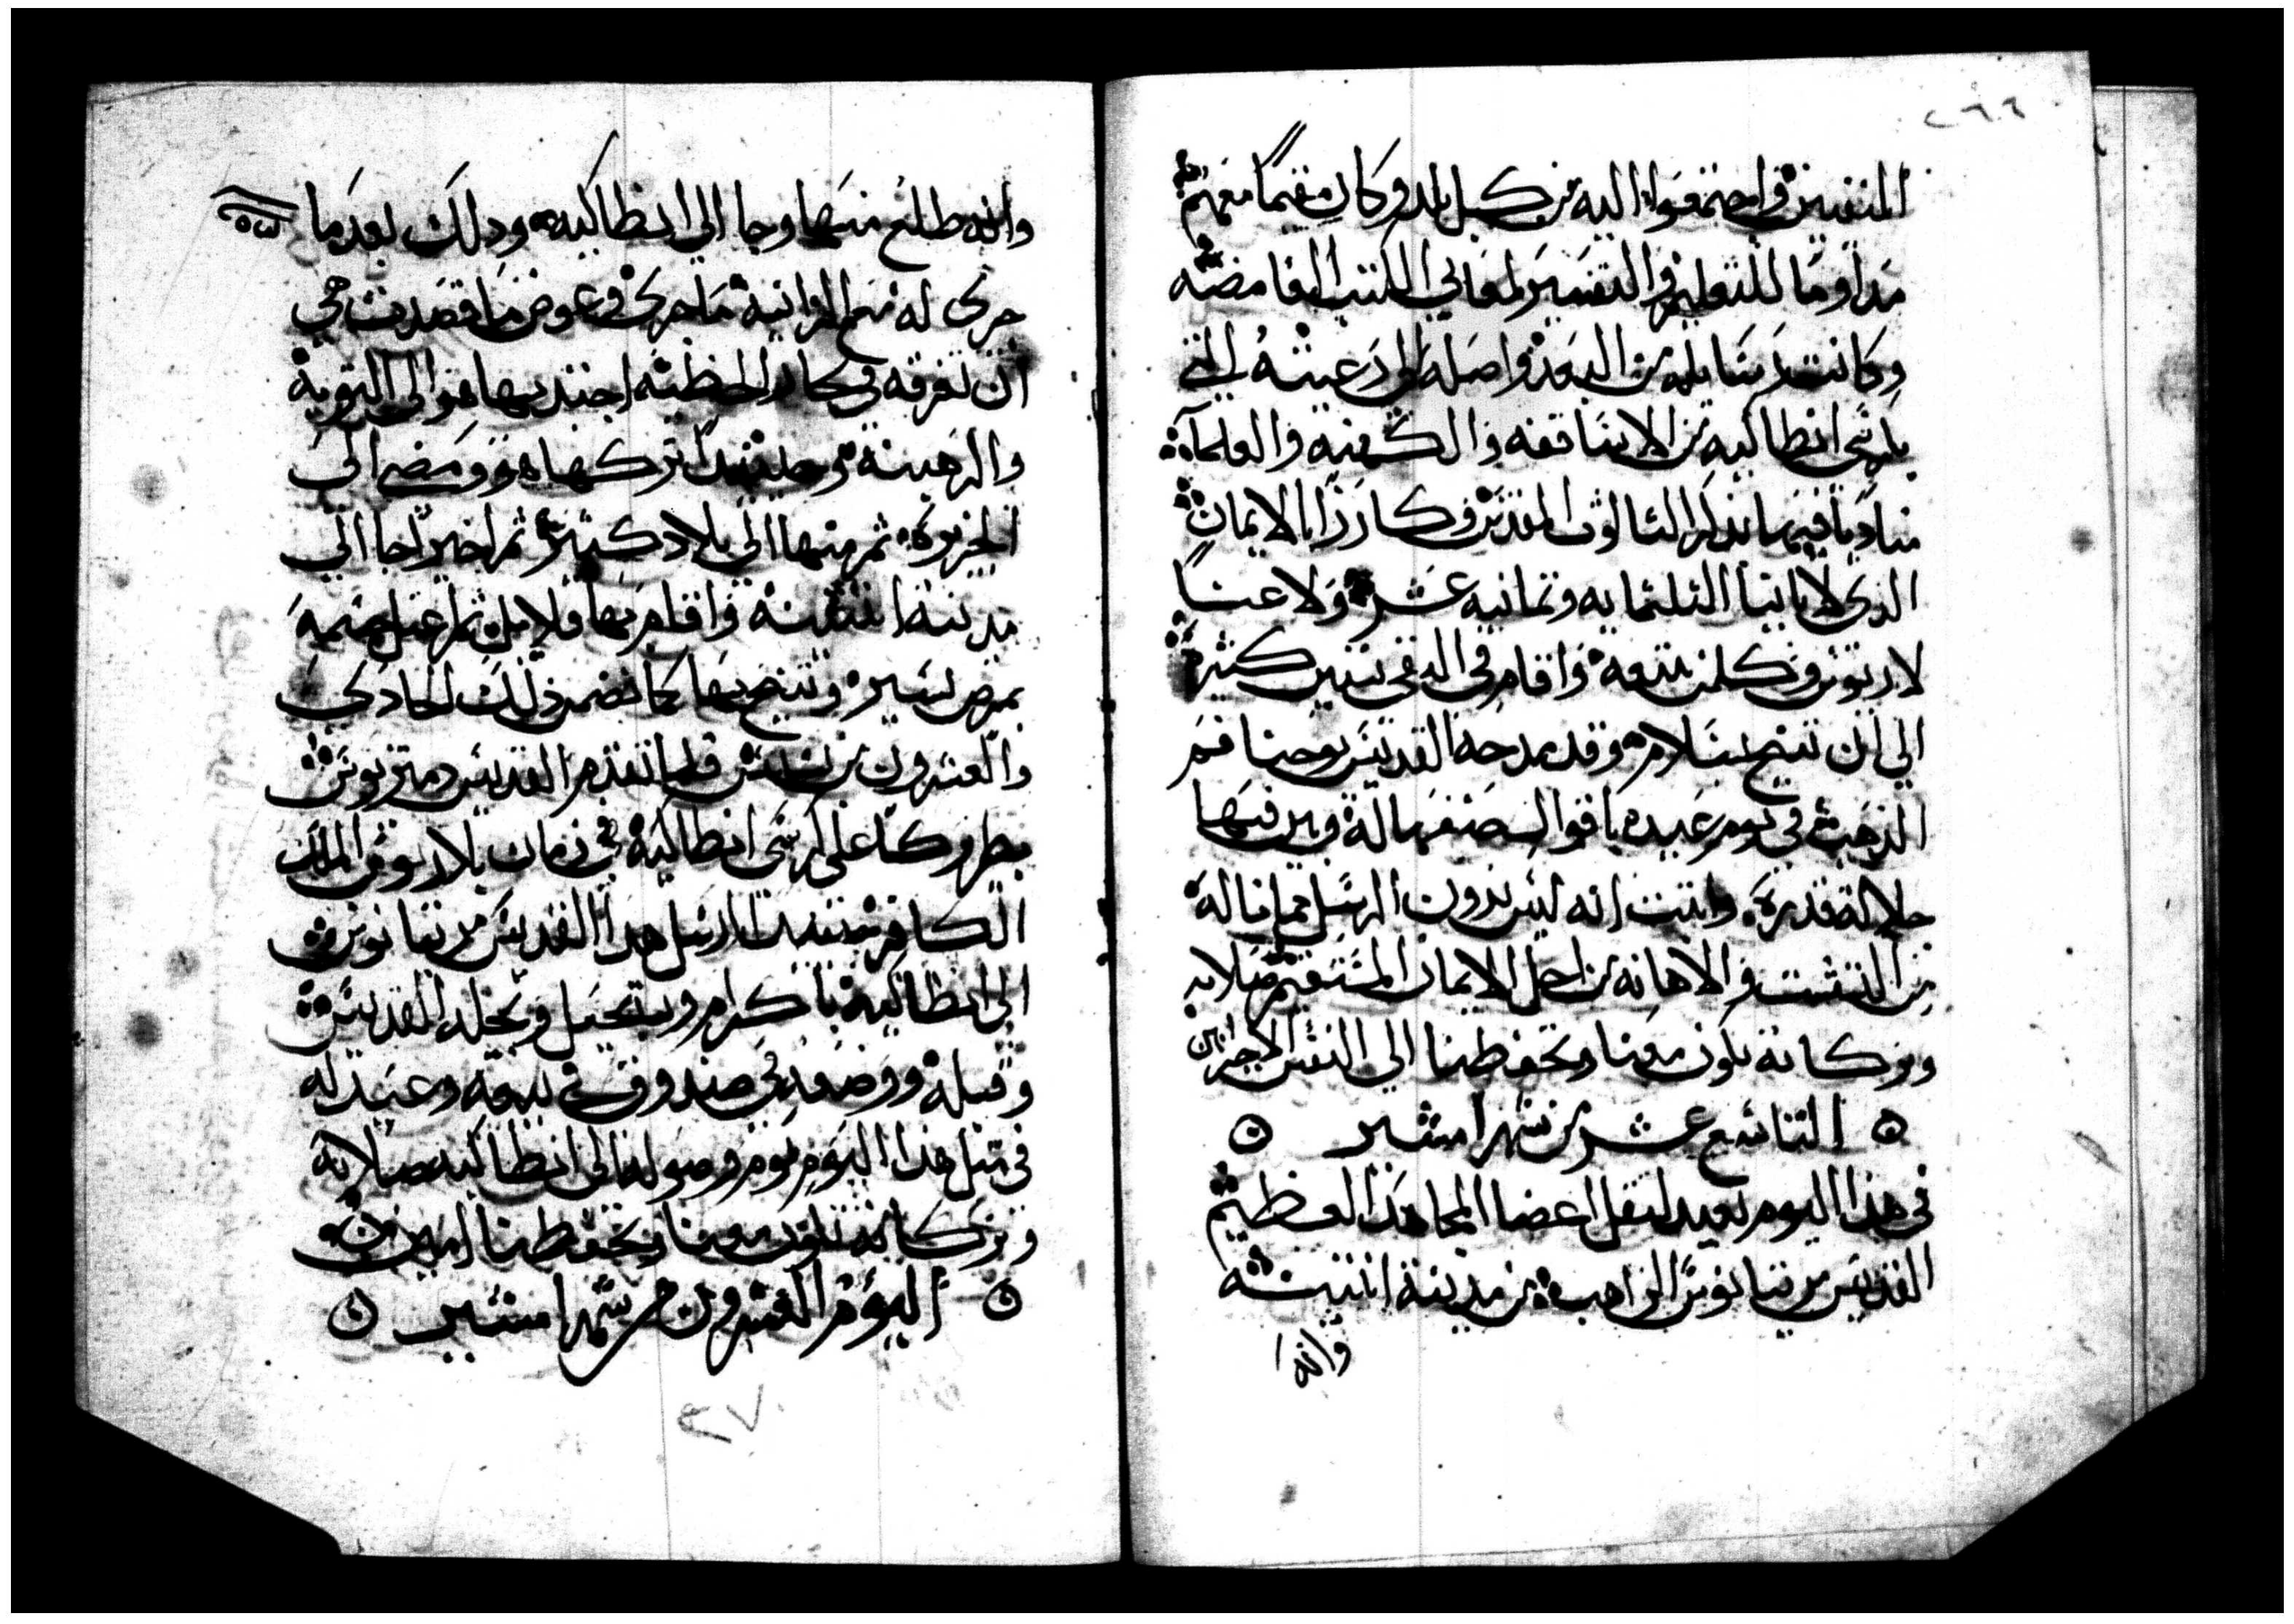 ٢٦٦
المنفيين فاجتمعوا اليه من كل بلد وكان مقيما معهم
مداوما للتعليم والتفسير لمعاني الكتب الغامضه
وكانت رسايله من البعد واصله الي رعيته التي
بكرسي انطاكيه من الاساقفه والكهنه والعلماء
مناديا فيها بذكر الثالوث المقدس وكارزا بالامانة
الذي لابائنا الثلثمايه وثمانيه عشر ولاعنا
لاريوس وكلمن يتبعه واقام في النفي سنين كثيرة
الي ان تنيح بسلام وقد مدحه القديس يوحنا فم
الذهب في يوم عيده باقوال صنفها له وبين فيها
جلالة قدره واثبت انه ليس بدون الرسل مما ناله
من التشتت والاهانه من اجل الايمان المستقيم صلاته
وبركاته تكون معنا وتحفظنا الي النفس الاخير امين
التاسع عشر من شهر امشير
في هذا اليوم نعيد لنقل اعضا المجاهد العظيم
القديس مرتيانوس الراهب من مدينة اتنيسه
وانه
وانه طلع منها وجا الي انطاكيه وذلك بعد ما
جرى له مع المرأة الزانية ما جرى وعوض ما قصدت هي
ان تغرقه في بحار الخطية اجتذبها هو الي التوبة
والرهبنة وحينئذ تركها هو ومضي الي
الجزيرة ثم منها الي بلاد كثيرة ثم اخيرا جا الي
مدينة اتنسنه واقام بها قلايل ثم اعتل جسمه
بمرض يسير وتنيح بها كما تضمن ذلك الحادي
والعشرون من بشنس فلما تقدم القديس دمتريوس
بطركا على كرسي انطاكية في زمان بلاريوس الملك
الكافر سير ارسل هذا القديس مرتيانوس
الي انطاكية باكرام وتبجيل وبخل القديس
وقبله ووضعه في صندوق في البيعه وعيد له
في مثل هذا اليوم يوم وصوله الي انطاكيه صلاته
وبركاته تكون معنا وتحفظنا امين
اليوم العشرون من شهر امشير
٢٧